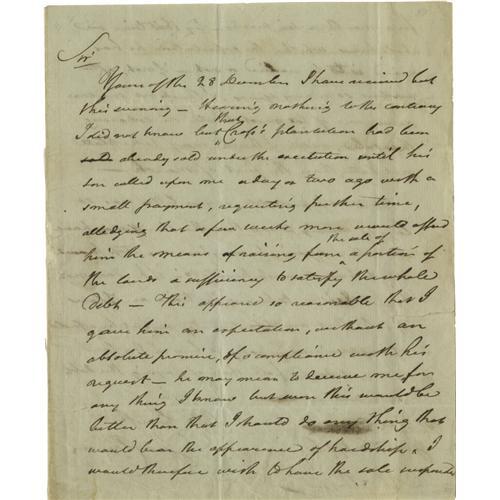 Sir
Yours of the 28 December I have received but
this evening — Hearing nothing to the contrary
I did not know but that Cross's plantation had been
sold already sold under the execution until his
son called upon me a day or two ago with a
small payment, requesting further time,
alledging that a few weeks more would afford
him the means of raising from the sale of a portion of
the lands a sufficiency to satisfy the whole
Debt — This appeared so reasonable that I
gave him an expectation, without an
absolute promise, of a compliance with his
request — he may mean to deceive me for
any thing I know but even this would be
better than that I should do any thing that
would bear the appearance of hardship. I
would therefore wish to have the sale suspended